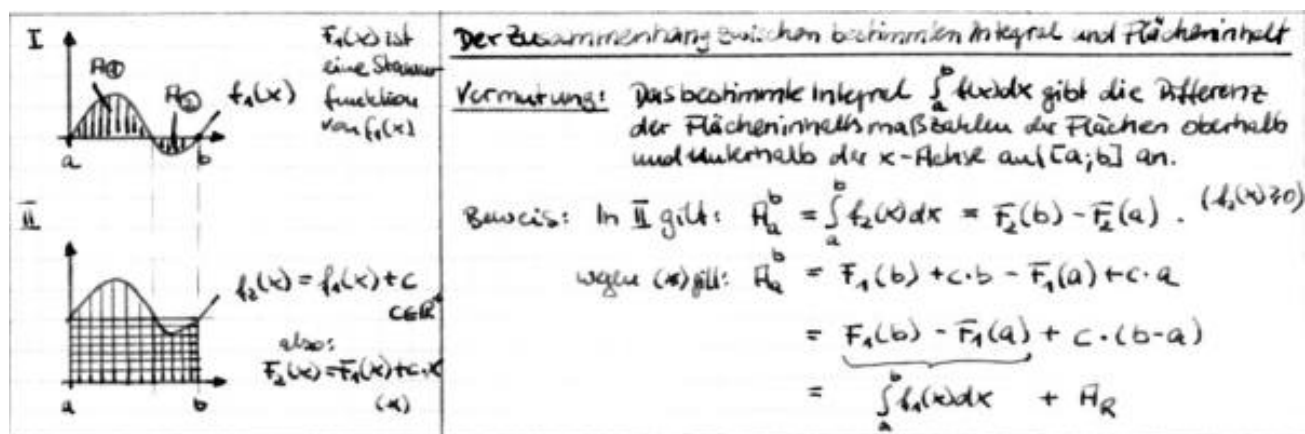 I
A①
A②
f₁(x)
a
b
F₁(x) ist
eine Stamm-
funktion
von f₁(x)
II
f₂(x) = f₁(x) + c
c∈ℝ
also:
F₂(x) = F₁(x) + c·x
(*)
a
b
Der Zusammenhang zwischen bestimmten Integral und Flächeninhalt
Vermutung: Das bestimmte Integral ∫ₐᵇ f(x)dx gibt die Differenz
der Flächeninhaltsmaßzahlen der Flächen oberhalb
und unterhalb der x-Achse auf [a;b] an.
Beweis: In II gilt: Aₐᵇ = ∫ₐᵇ f₂(x)dx = F₂(b) - F₂(a). (f₂(x)≥0)
wegen (*) gilt: Aₐᵇ = F₁(b) + c·b - F₁(a) + c·a
= F₁(b) - F₁(a) + c·(b-a)
= ∫ₐᵇ f₁(x)dx + A_R